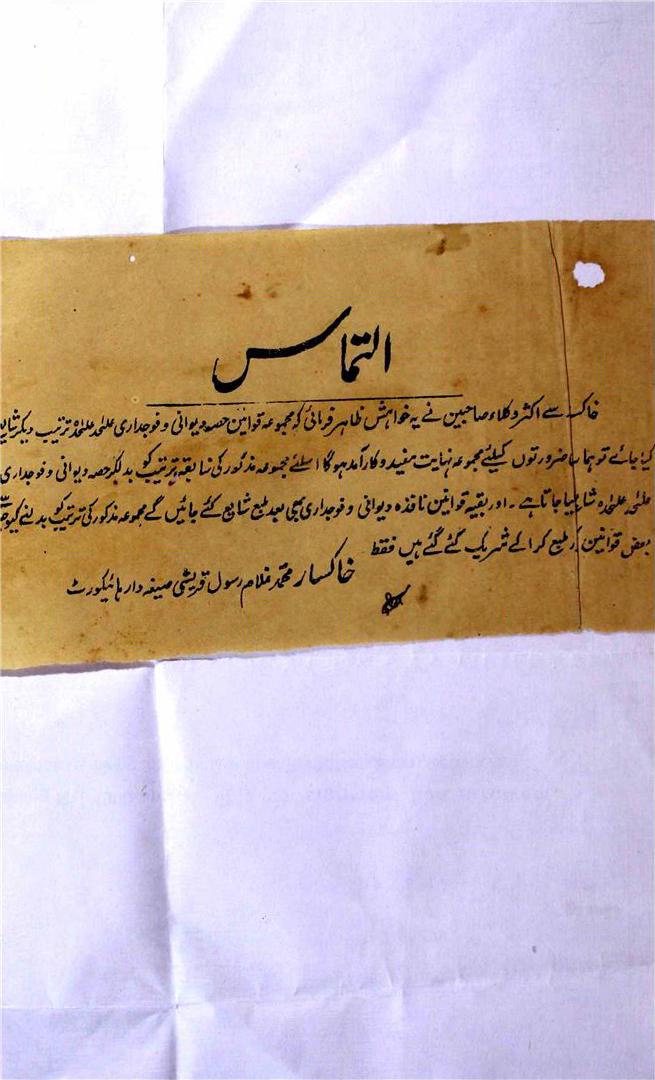 التماس
خاکسار سے اکثر وکلاء صاحبین نے یہ خواہش ظاہر فرمائی کہ مجموعہ قوانین حصہ دیوانی و فوجداری علٰحدہ علٰحدہ ترتیب دیکر شایع
کیا جائے تو ہماری ضرورتوں کیلئے مجموعہ نہایت مفید و کارآمد ہوگا اسلئے مجموعہ مذکور کی سابقہ ترتیب کو بدلکر حصہ دیوانی و فوجداری
علٰحدہ علٰحدہ شایع کیا جاتا ہے ۔ اور بقیہ قوانین نافذہ دیوانی و فوجداری بھی بعد طبع شایع کئے جائیں گے مجموعہ مذکور کی ترتیب کو بدلنے کیوجہ سے
بعض قوانین مکرر طبع کرا کے شریک کئے گئے ہیں فقط
خاکسار محمد غلام رسول قریشی صیغہ دار ہائیکورٹ